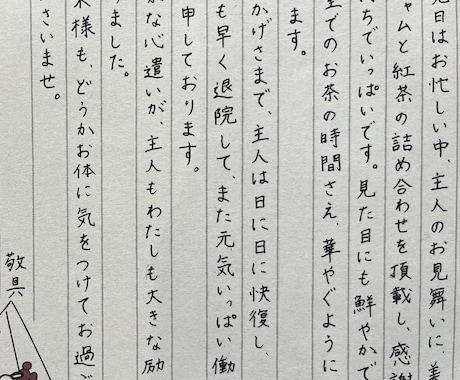 先日はお忙しい中、主人のお見舞いに、美
ャムと紅茶の詰め合わせを頂載し、感謝
持ちでいっぱいです。見た目にも鮮やかで
室でのお茶の時間さえ、華やぐように
ます。
かげさまで、主人は日に日に快復し、
も早く退院して、また元気いっぱい働
申しております。
かな心遣いが、主人もわたしも大きな励
りました。
様も、どうかお体に気をつけてお過ご
さいませ。
敬具